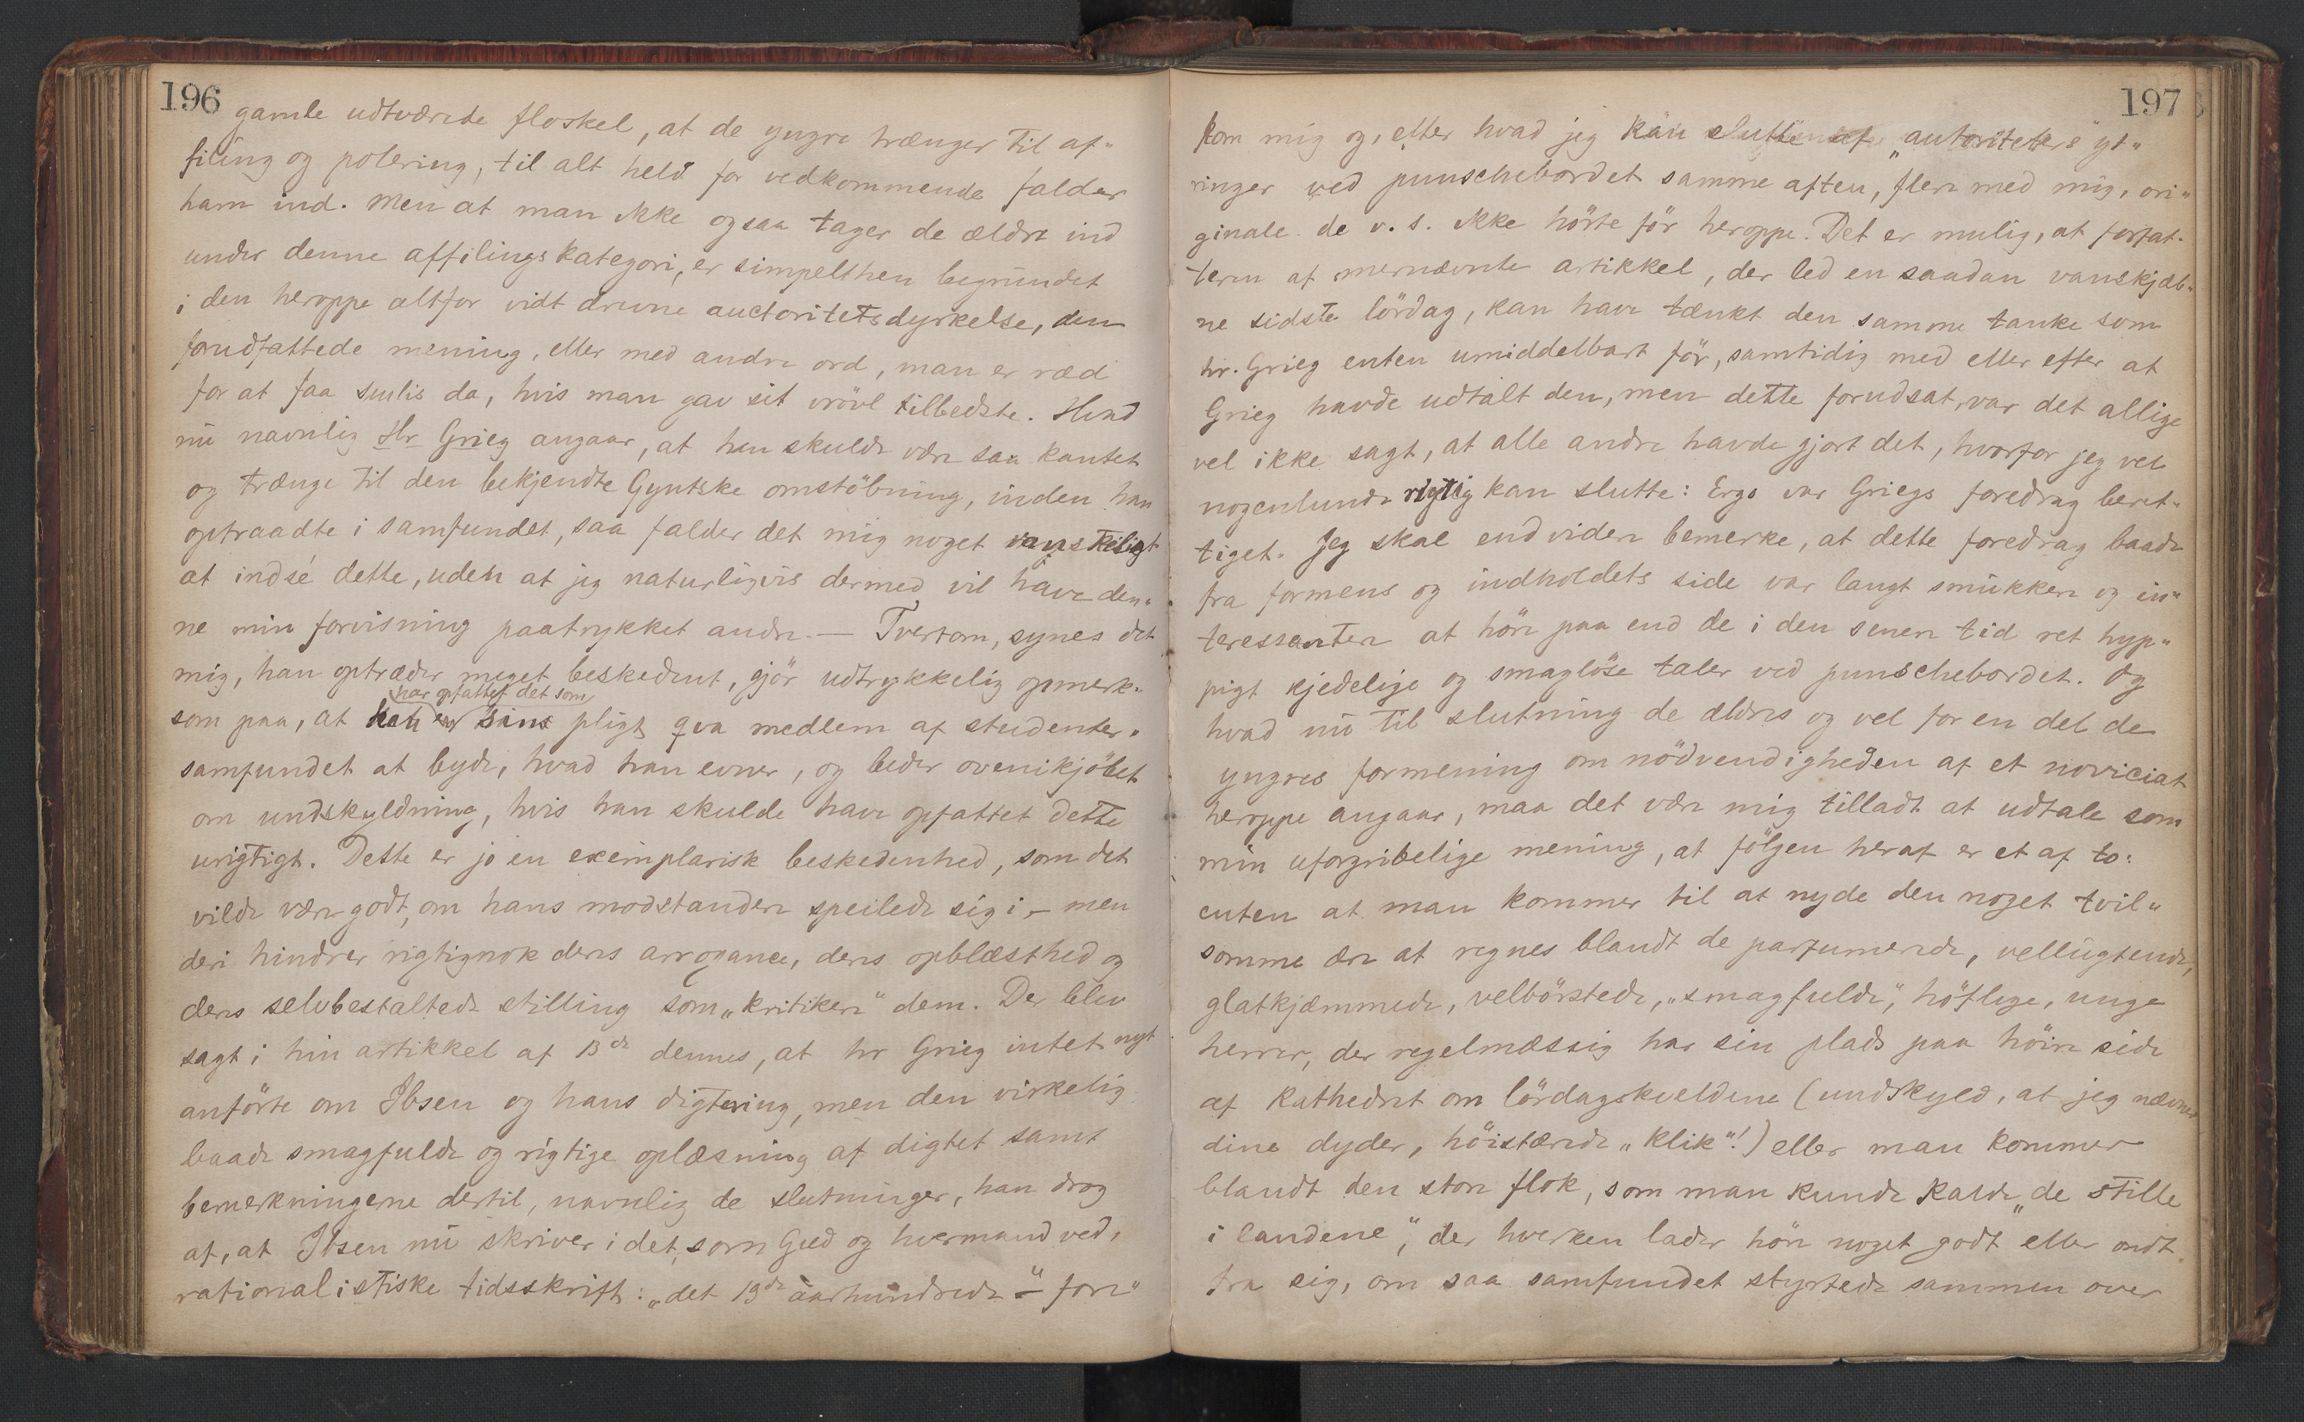 196
gamle udtværede floskel, at de yngre trænger til af-
filing og polering, til alt held for vedkommende falder
ham ind. Men at man ikke ogsaa tager de ældre ind
under denne affilingskategori, er simpelthen begrundet
i den heroppe altfor vidt drevne auctoritetsdyrkelse, den
forudfattede mening, eller med andre ord, man er ræd
for at faa smlis da, hvis man gav sit vrövl tilbedste. Hvad
nu navnlig Hr Grieg angaar, at han skulde være saa kantet
og trænge til den bekjendte Gyntske omstöbning, inden han
optraadte i samfundet, saa falder det mig noget vanskeligt
at indsé dette, uden at jeg naturligvis dermed vil have den-
ne min forvisning paatrykket andre. — Tvertom, synes det
mig, han optræder meget beskedent, gjör udtrykkelig opmerk-
har opfattet det som
som paa, at han er sins pligt qva medlem af studenter-
samfundet at byde, hvad han evner, og beder ovenikjöbet
om undskyldning, hvis han skulde have opfattet dette
urigtigt. Dette er jo en exemplarisk beskedenhed, som det
vilde være godt, om hans modstandere speilede sig i – men
deri hindrer rigtignok deres arrogance, deres opblæsthed og
deres selvbestaltede stilling som „kritikere“ dem. Der blev
sagt i hin artikkel af 13de dennes, at hr Grieg intet nyt
anförte om Ibsen og hans digtning, men den virkelig
baade smagfulde og rigtige oplæsning af digtet samt
bemerkningerne dertil, navnlig de slutninger, han drog
af, at Ibsen nu skriver i det, som Gud og hvermand ved,
rationalistiske tidsskrift: „det 19de aarhundrede“ – fore-
197
kom mig og, efter hvad jeg kan slutte af „autoriteters“ yt-
ringer ved punschebordet samme aften, flere med mig, ori-
ginale. de v. s. ikke hörte för heroppe. Det er mulig, at forfat-
teren af mernævnte artikkel, der led en saadan vanskjæb-
ne sidste lördag, kan have tænkt den samme tanke som
hr. Grieg enten umiddelbart för, samtidig med eller efter at
Grieg havde udtalt den, men dette forudsat, var det allige
vel ikke sagt, at alle andre havde gjort det, hvorfor jeg vel
nogenlunde rigtig kan slutte: Ergo var Griegs foredrag beret-
tiget. Jeg skal endvidere bemerke, at dette foredrag baade
fra formens og indholdets side var langt smukkere og in-
teressantere at höre paa end de i den senere tid ret hyp-
pigt kjedelige og smaglöse taler ved punschebordet. Og
hvad nu til slutning de ældres og vel for en del de
yngres formening om nödvendigheden af et noviciat
heroppe angaar, maa det være mig tilladt at udtale som
min uforgribelige mening, at fölgen heraf er et af to:
enten at man kommer til at nyde den noget tvil-
somme ære at regnes blandt de parfumerede, vellugtende,
glatkjæmmede, velbörstede, „smagfulde“, höflige, unge
herrer, der regelmæssig har sin plads paa höire side
af kathedret om lördagskveldene (undskyld, at jeg nævner
dine dyder, höistærede „klik“!) eller man kommer
blandt den store flok, som man kunde kalde „de stille
i landene“, der hverken lader höre noget godt eller ondt
fra sig, om saa samfundet styrtede sammen over